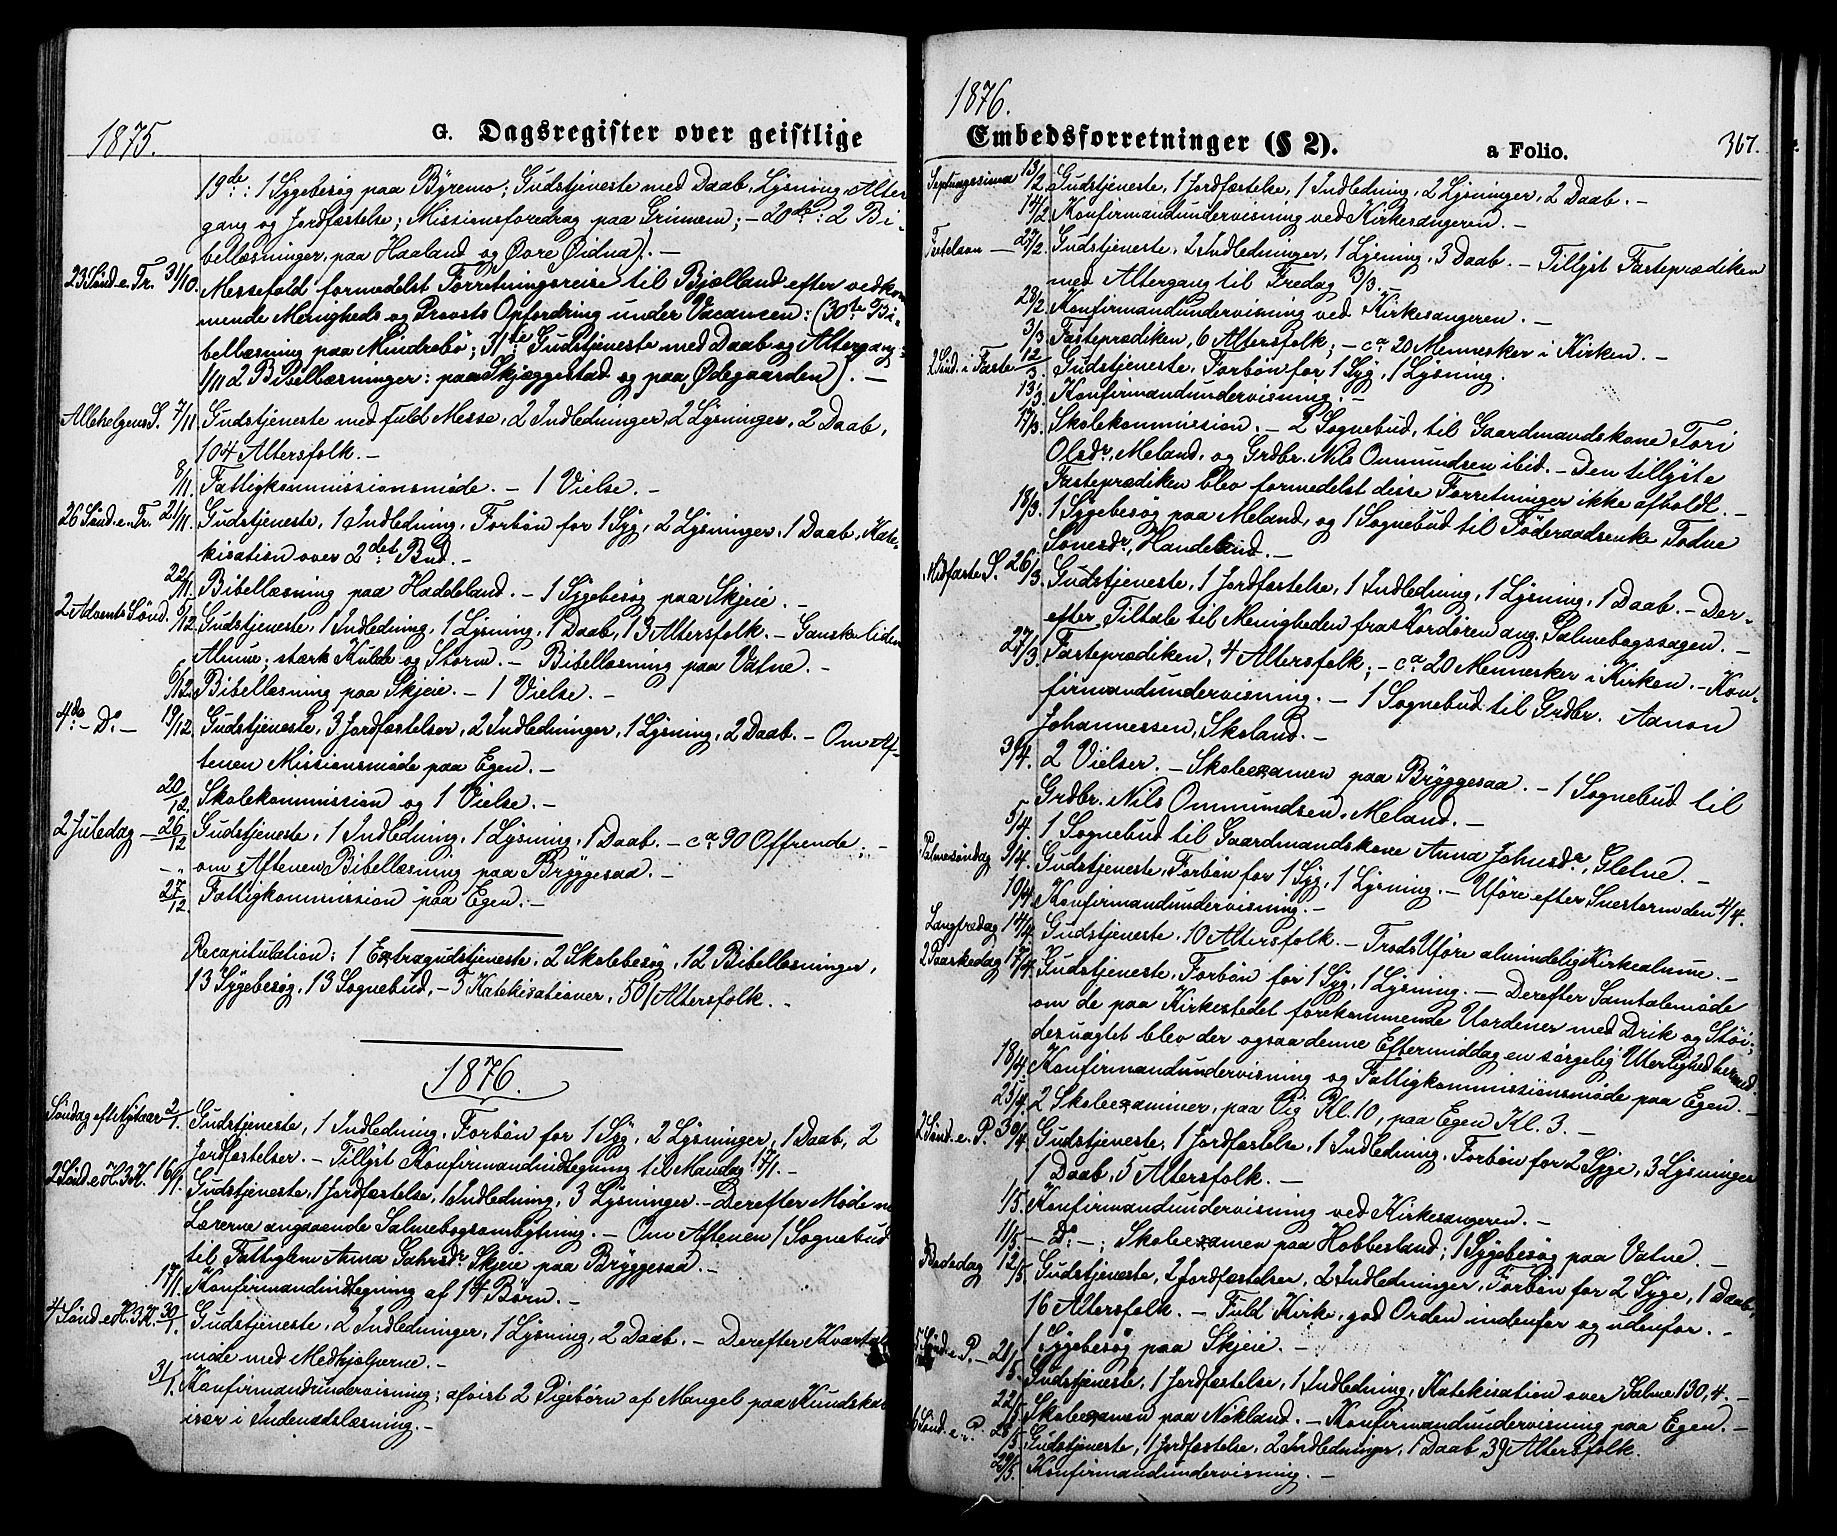 1875.
G. Dagsregister over geistlige
19de: 1 Sygebesøg paa Byremo; Gudstjeneste med Daab, Lysning, Alter-
gang og Jordfæstelse; Missionsforedrag paa Grinnem; – 20de: 2 Bi-
bellæsninger, paa Haaland og Øvre Øidna). –
23 Sønd. e. Tr. 31/10. Messefald formedelst Forretningsreise til Bjelland efter vedkom-
mende Menigheds og Provsts Opfordring under Vacansen: (30te Bi-
bellæsning paa Mindrebø; 31te Gudstjeneste med Daab og Altergang;
1/11 2 Bibellæsninger: paa Skjæggestad og paa Ødegaarden). –
Allehelgens S. 7/11 Gudstjeneste med fuld Messe, 2 Indledninger, 2 Lysninger, 2 Daab,
104 Altersfolk. –
8/11. Fattigkommissionsmøde. – 1 Vielse. –
26 Sønd. e. Tr. 21/11. Gudstjeneste, 1 Indledning, Forbøn for 1 Syg, 2 Lysninger, 1 Daab, Kate-
kisation over 2det Bud. –
22/11. Bibellæsning paa Haddeland. – 1 Sygebesøg paa Skjeie. –
2 Advents Sønd. 5/12. Gudstjeneste, 1 Indledning, 1 Lysning, 1 Daab, 13 Altersfolk. – Ganske liden
Almue; stærk Kulde og Storm. – Bibellæsning paa Valne. –
6/12. Bibellæsning paa Skjeie. – 1 Vielse. –
4de – Do – 19/12. Gudstjeneste, 3 Jordfæstelser, 2 Indledninger, 1 Lysning, 2 Daab. – Om Af-
tenen Missionsmøde paa Egen. –
20/12. Skolekommission og 1 Vielse. –
2 Juledag – 26/12 Gudstjeneste, 1 Indledning, 1 Lysning, 1 Daab. – ca 90 Offrende; –
– " om Aftenen Bibellæsning paa Bryggesaa. –
27/12. Fattigkommission paa Egen. –
Recapitulation: 1 Extragudstjeneste, 2 Skolebesøg, 12 Bibellæsninger,
13 Sygebesøg, 13 Sognebud, – 5 Katekisationer, 501 Altersfolk. –
1876.
Søndag eft. Nytaar 2/1. Gudstjeneste, 1 Indledning, Forbøn for 1 Syg, 2 Lysninger, 1 Daab, 2
Jordfæstelser. – Tillyst Konfirmandindtegning til Mandag 17/1. –
2 Sønd. e. H. 3 K. 16/1. Gudstjeneste, 1 Jordfæstelse, 1 Indledning, 3 Lysninger. – Derefter Møde m
Lærerne angaaende Salmebogsombytning. – Om Aftenen 1 Sognebud
til Fattiglem Anna Gahrsdr Skjeie paa Bryggesaa. –
17/1. Konfirmandindtegning af 14 Børn. –
4 Sønd. e. H. 3 K. 30/1. Gudstjeneste, 2 Indledninger, 1 Lysning, 2 Daab. – Derefter Kvartal
møde med Medhjelperne. –
31/1. Konfirmandundervisning; afvist 2 Pigebørn af Mangel paa Kundska
iser i Indenadslæsning. –
1876.
Embedsforretninger (§ 2).
a Folio.
367.
Septuagesima 13/2 Gudstjeneste, 1 Jordfæstelse, 1 Indledning, 2 Lysninger, 2 Daab. –
14/2 Konfirmandundervisning ved Kirkesangeren. –
Fastelavn – 27/2. Gudstjeneste, 2 Indledninger, 1 Lysning, 3 Daab. – Tillyst Fasteprædiken
med Altergang til Fredag 3/3. –
28/2. Konfirmandundervisning ved Kirkesangeren. –
3/3. Fasteprædiken, 6 Altersfolk; – ca 20 Mennesker i Kirken. –
2 Sønd. i Faste 12/3. Gudstjeneste, Forbøn for 1 Syg, 1 Lysning.
13/3 Konfirmandundervisning. –
17/3. Skolekommission. – 2 Sognebud, til Gaardmandskone Tori
Olsdr, Meland, og Grdbr. Nils Ommundsen ibid. – Den tillyste
Fasteprædiken blev formedelst disse Forretninger ikke afholdt. –
18/3. 1 Sygebesøg paa Meland, og 1 Sognebud til Føderaadsenke Todne
Sonesdr, Handeland. –
Midfaste S. 26/3. Gudstjeneste, 1 Jordfæstelse, 1 Indledning, 1 Lysning, 1 Daab. – Der-
efter Tiltale til Menigheden fra Kordøren ang. Salmebogssagen. –
27/3 Fasteprædiken, 4 Altersfolk; – ca 20 Mennesker i Kirken. – Kon-
firmandundervisning. – 1 Sognebud til Grdbr. Aanon
Johannessen, Skoland. –
3/4. 2 Vielser. – Skoleexamen paa Bryggesaa. – 1 Sognebud til
Grdbr. Nils Ommundsen, Meland. –
5/4. 1 Sognebud til Gaardmandskone Anna Johnsdr, Sletne. –
Palmesøndag 9/4. Gudstjeneste, Forbøn for 1 Syg, 1 Lysning. – Uføre efter Snestorm den 4/4.
10/4. Konfirmandundervisning. –
Langfredag 14/4. Gudstjeneste, 10 Altersfolk. – Trods Uføre almindelig Kirkealmue. –
2 Paaskedag 17/4. Gudstjeneste, Forbøn for 1 Syg, 1 Lysning. – Derefter Samtalemøde
om de paa Kirkestedet forekommende Uordener med Drik og Støi;
desuagtet blev der ogsaa denne Eftermiddag en sørgelig Uterlighed hermed.
18/4. Konfirmandundervisning og Fattigkommissionsmøde paa Egen. –
25/4. 2 Skoleexaminer, paa Vig Kl. 10, paa Egen Kl. 3. –
2 Sønd. e. P. 30/4. Gudstjeneste, 1 Jordfæstelse, 1 Indledning, Forbøn for 2 Syge, 3 Lysninger
1 Daab, 5 Altersfolk. –
1/5. Konfirmandundervisning ved Kirkesangeren. –
11/5 – Do –; Skoleexamen paa Hobbesland; 1 Sygebesøg paa Valne. –
Bededag 12/5. Gudstjeneste, 2 Jordfæstelser, 2 Indledninger, Forbøn for 2 Syge, 1 Daab,
16 Altersfolk. – Fuld Kirke, god Orden indenfor og udenfor. –
1 Sygebesøg paa Skjeie. –
5 Sønd. e. P. – 21/5. Gudstjeneste, 1 Jordfæstelse, 1 Indledning, Katekisation over Salme 130, 4. –
22/5. Skoleexamen paa Nökland. – Konfirmandundervisning paa Egen. –
6 Sønd. e. P. 28/5. Gudstjeneste, 1 Jordfæstelse, 2 Indledninger, 1 Daab, 39 Altersfolk.
29/5. Konfirmandundervisning. –